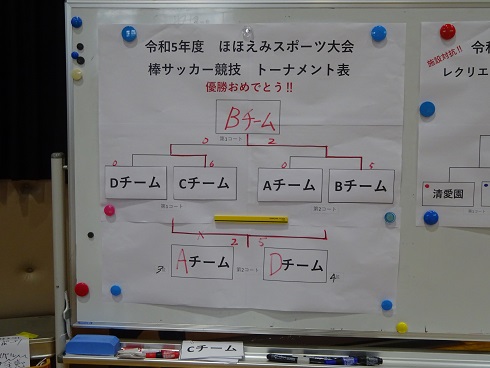 令和5年度　ほほえみスポーツ大会
棒サッカー競技　トーナメント表
優勝おめでとう!!
Bチーム
第1コート
0 2
0 6 0 5
Dチーム Cチーム Aチーム Bチーム
第1コート 第2コート
2 5
Aチーム 第2コート Dチーム
Cチーム
施設対抗!!
令和
レクリエ
清愛園